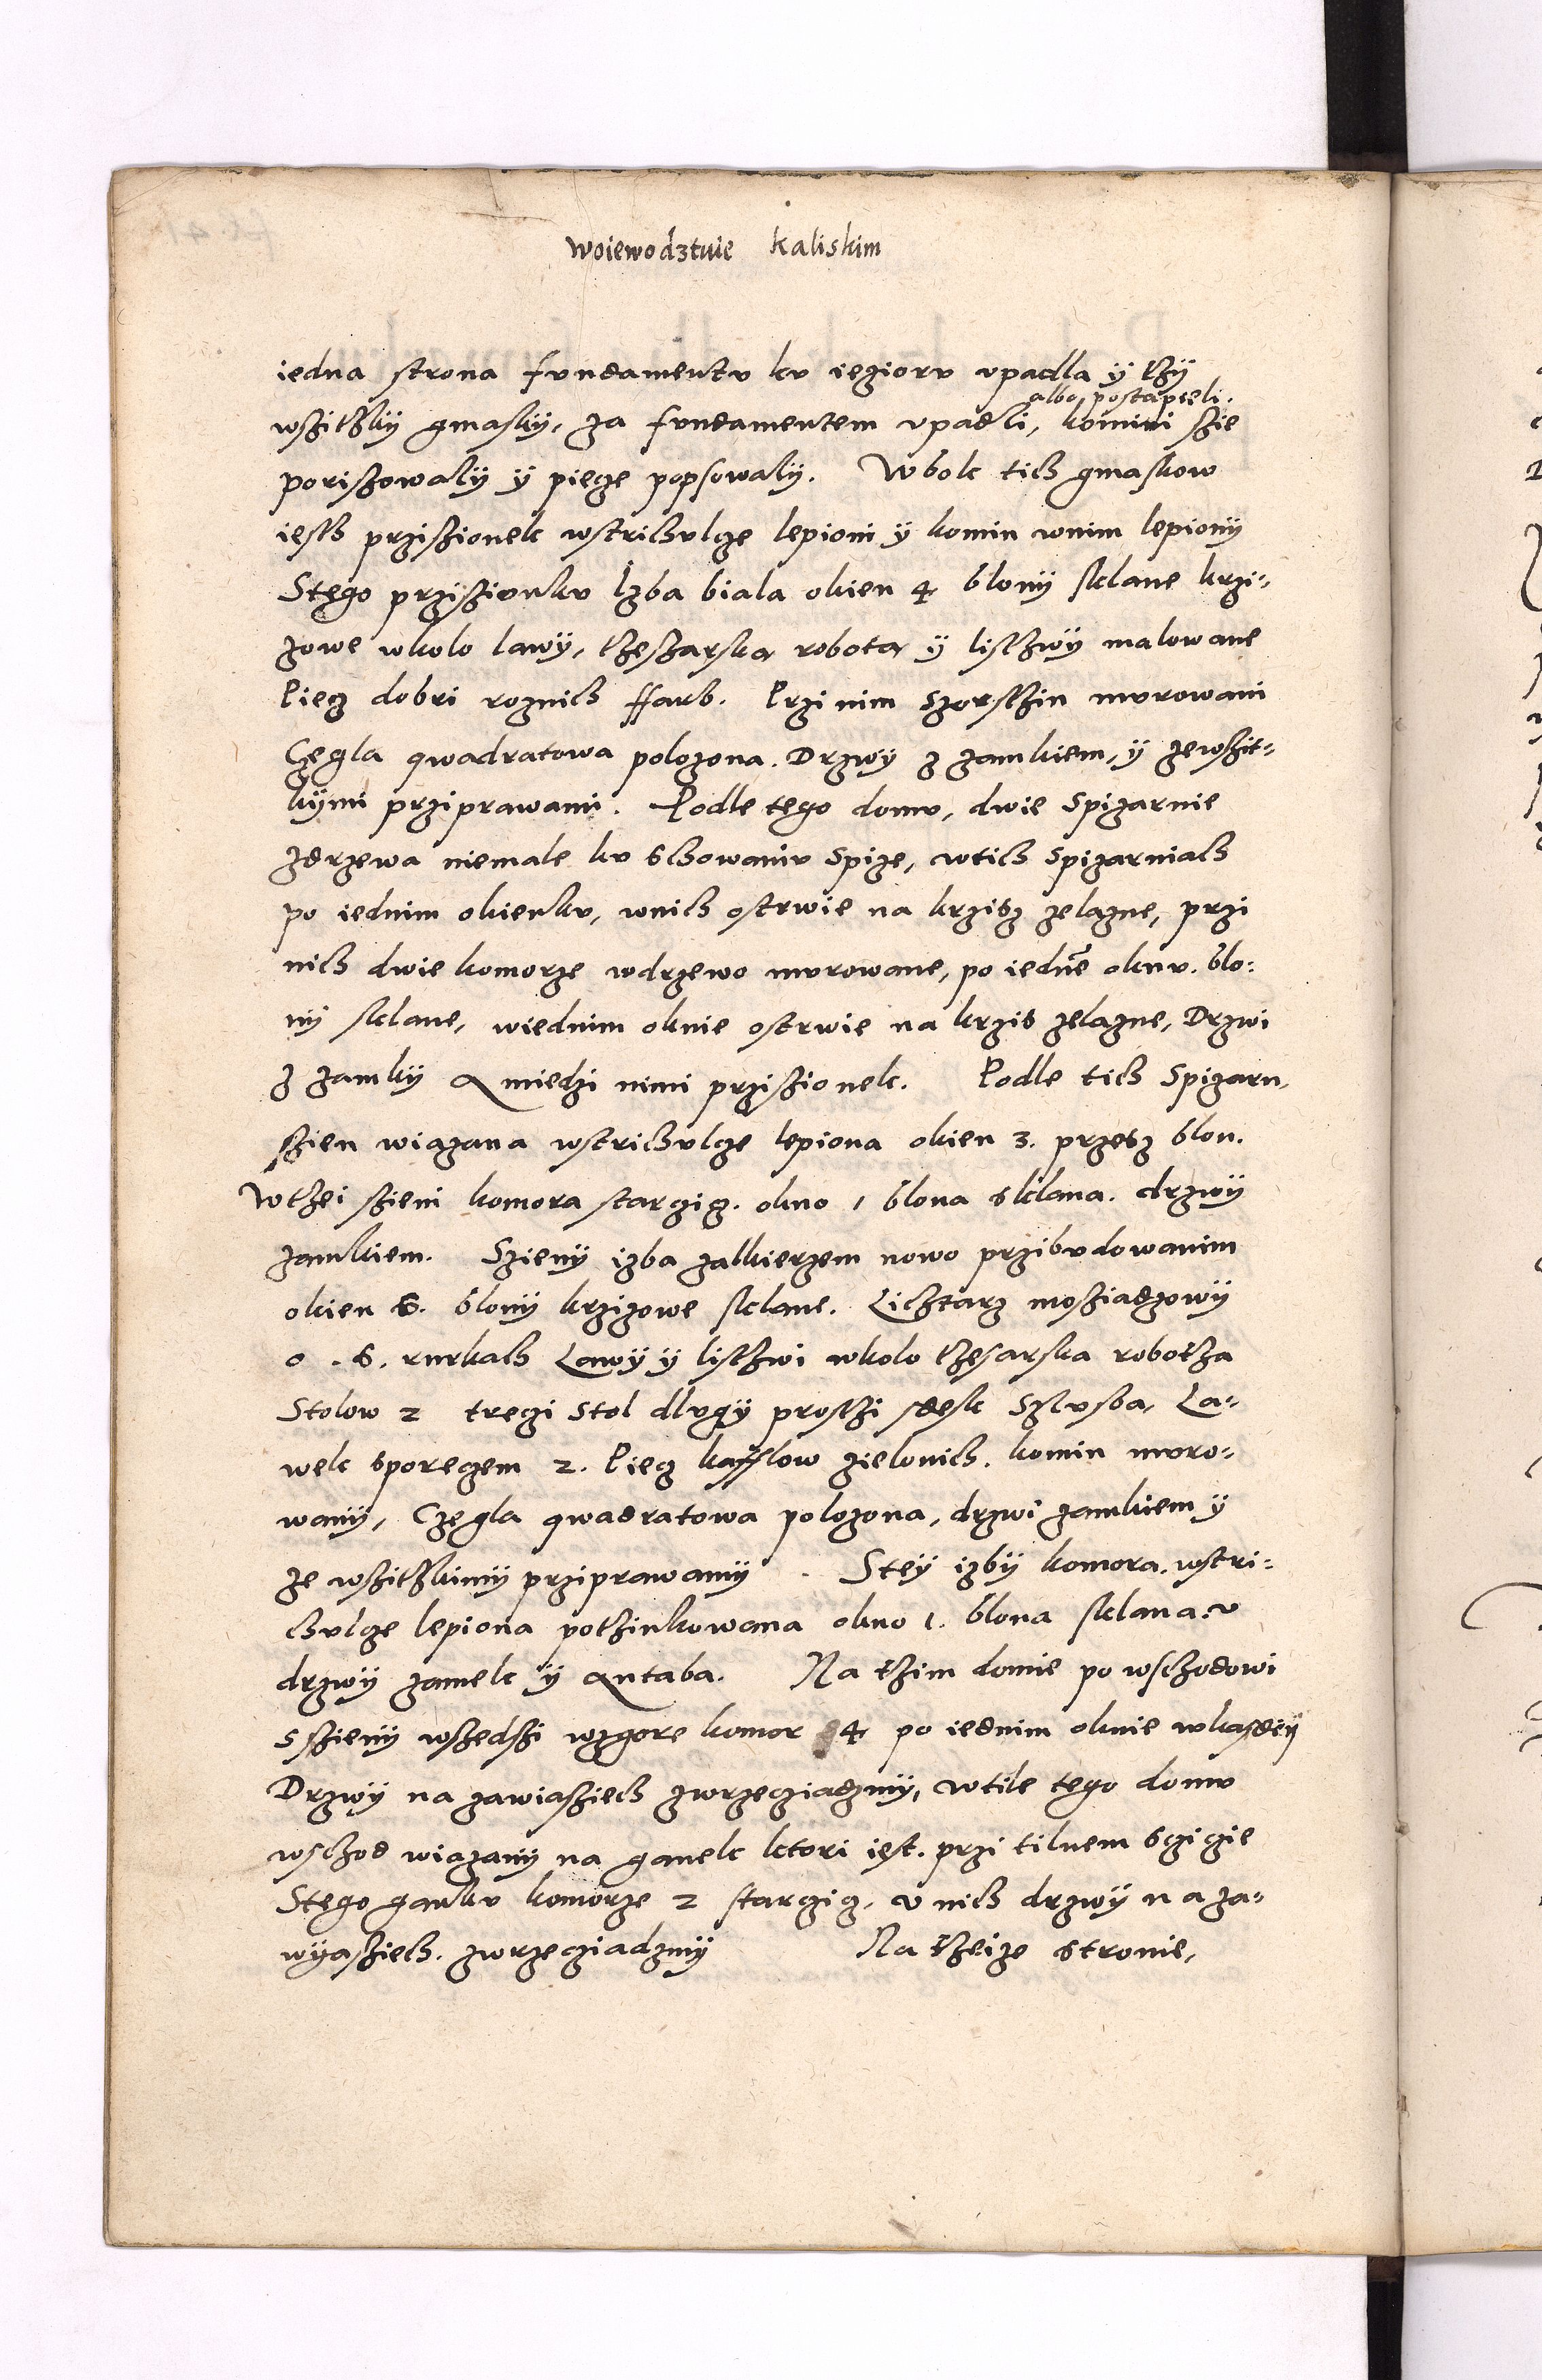 woiewodztwie kaliskim
iedna strona fundamentu ku iezioru vpadla y tzy
albo postapieli.
wszitzky gmasky, za fundamentem vpadli, komini szie
poriszowaly y piecze popsowaly. W bok tich gmaskow
iesth prziszionek wstrichulcze lepioni y komin wnim lepiony
Stego przisziunku Izba biala okien 4 blony sklane krzi-
zowe wkolo lawy, tzeszarska robota y listzwy malowane
Piecz dobri roznich ffarb. Przi nim Szorsthin murowani
Czegla qwadratowa polozona. Drzwy z zamkiem, y zewszit-
kymi prziprawami. Podle tego domu, dwie Spizarnie
zdrzewa niemale ku Chowaniu Spize, wtich Spizarniach
po iednim okienku, wnich ostrwie na krzisz zelazne, przi
nich dwie komorze wdrzewo murowane, po iedne oknu. blo:
ny sklane, wiednim oknie ostrwie na krzis zelazne, Drzwi
z zamky A miedzi nimi prziszionek. Podle tich Spizarn,
szien wiazana wstrichulcze lepiona okien 3. przesz blon.
Wtzei szieni komora starczicz. okno 1 blona sklana. drzwy
zamkiem. Szieny izba zalkierzem nowo przibudowanim
okien 6. blony krzizowe sklane. Lichtarz mosziadzowy
o . 6. rurkach Lawy y listzwi wkolo tzesarska robotha
Stolow 2 treczi Stol dlugy prosthi sdesk Szlusba, La-
wek sporeczem 2. Piecz kafflow zielonich. komin muro-
wany, Czegla qwadratowa polozona, drzwi zamkiem y
ze wszitzkimy prziprawamy . Stey izby komora. wstri-
chulcze lepiona potzinkowana okno 1. blona sklana. v
drzwy zamek y Antaba. Na tzim domie po wschodowi
s szieny wszedszi wzgore komor 4 po iednim oknie wkasdey
Drzwy na zawiasziech zwrzecziadzmy, wtile tego domu
wschod wiazany na ganek ktori iest. przi tilnem sczicie
Stego ganku komorze 2 starczicz, v nich drzwy na za-
wyasziech. zwrzecziadzmy Na tzeize stronie,